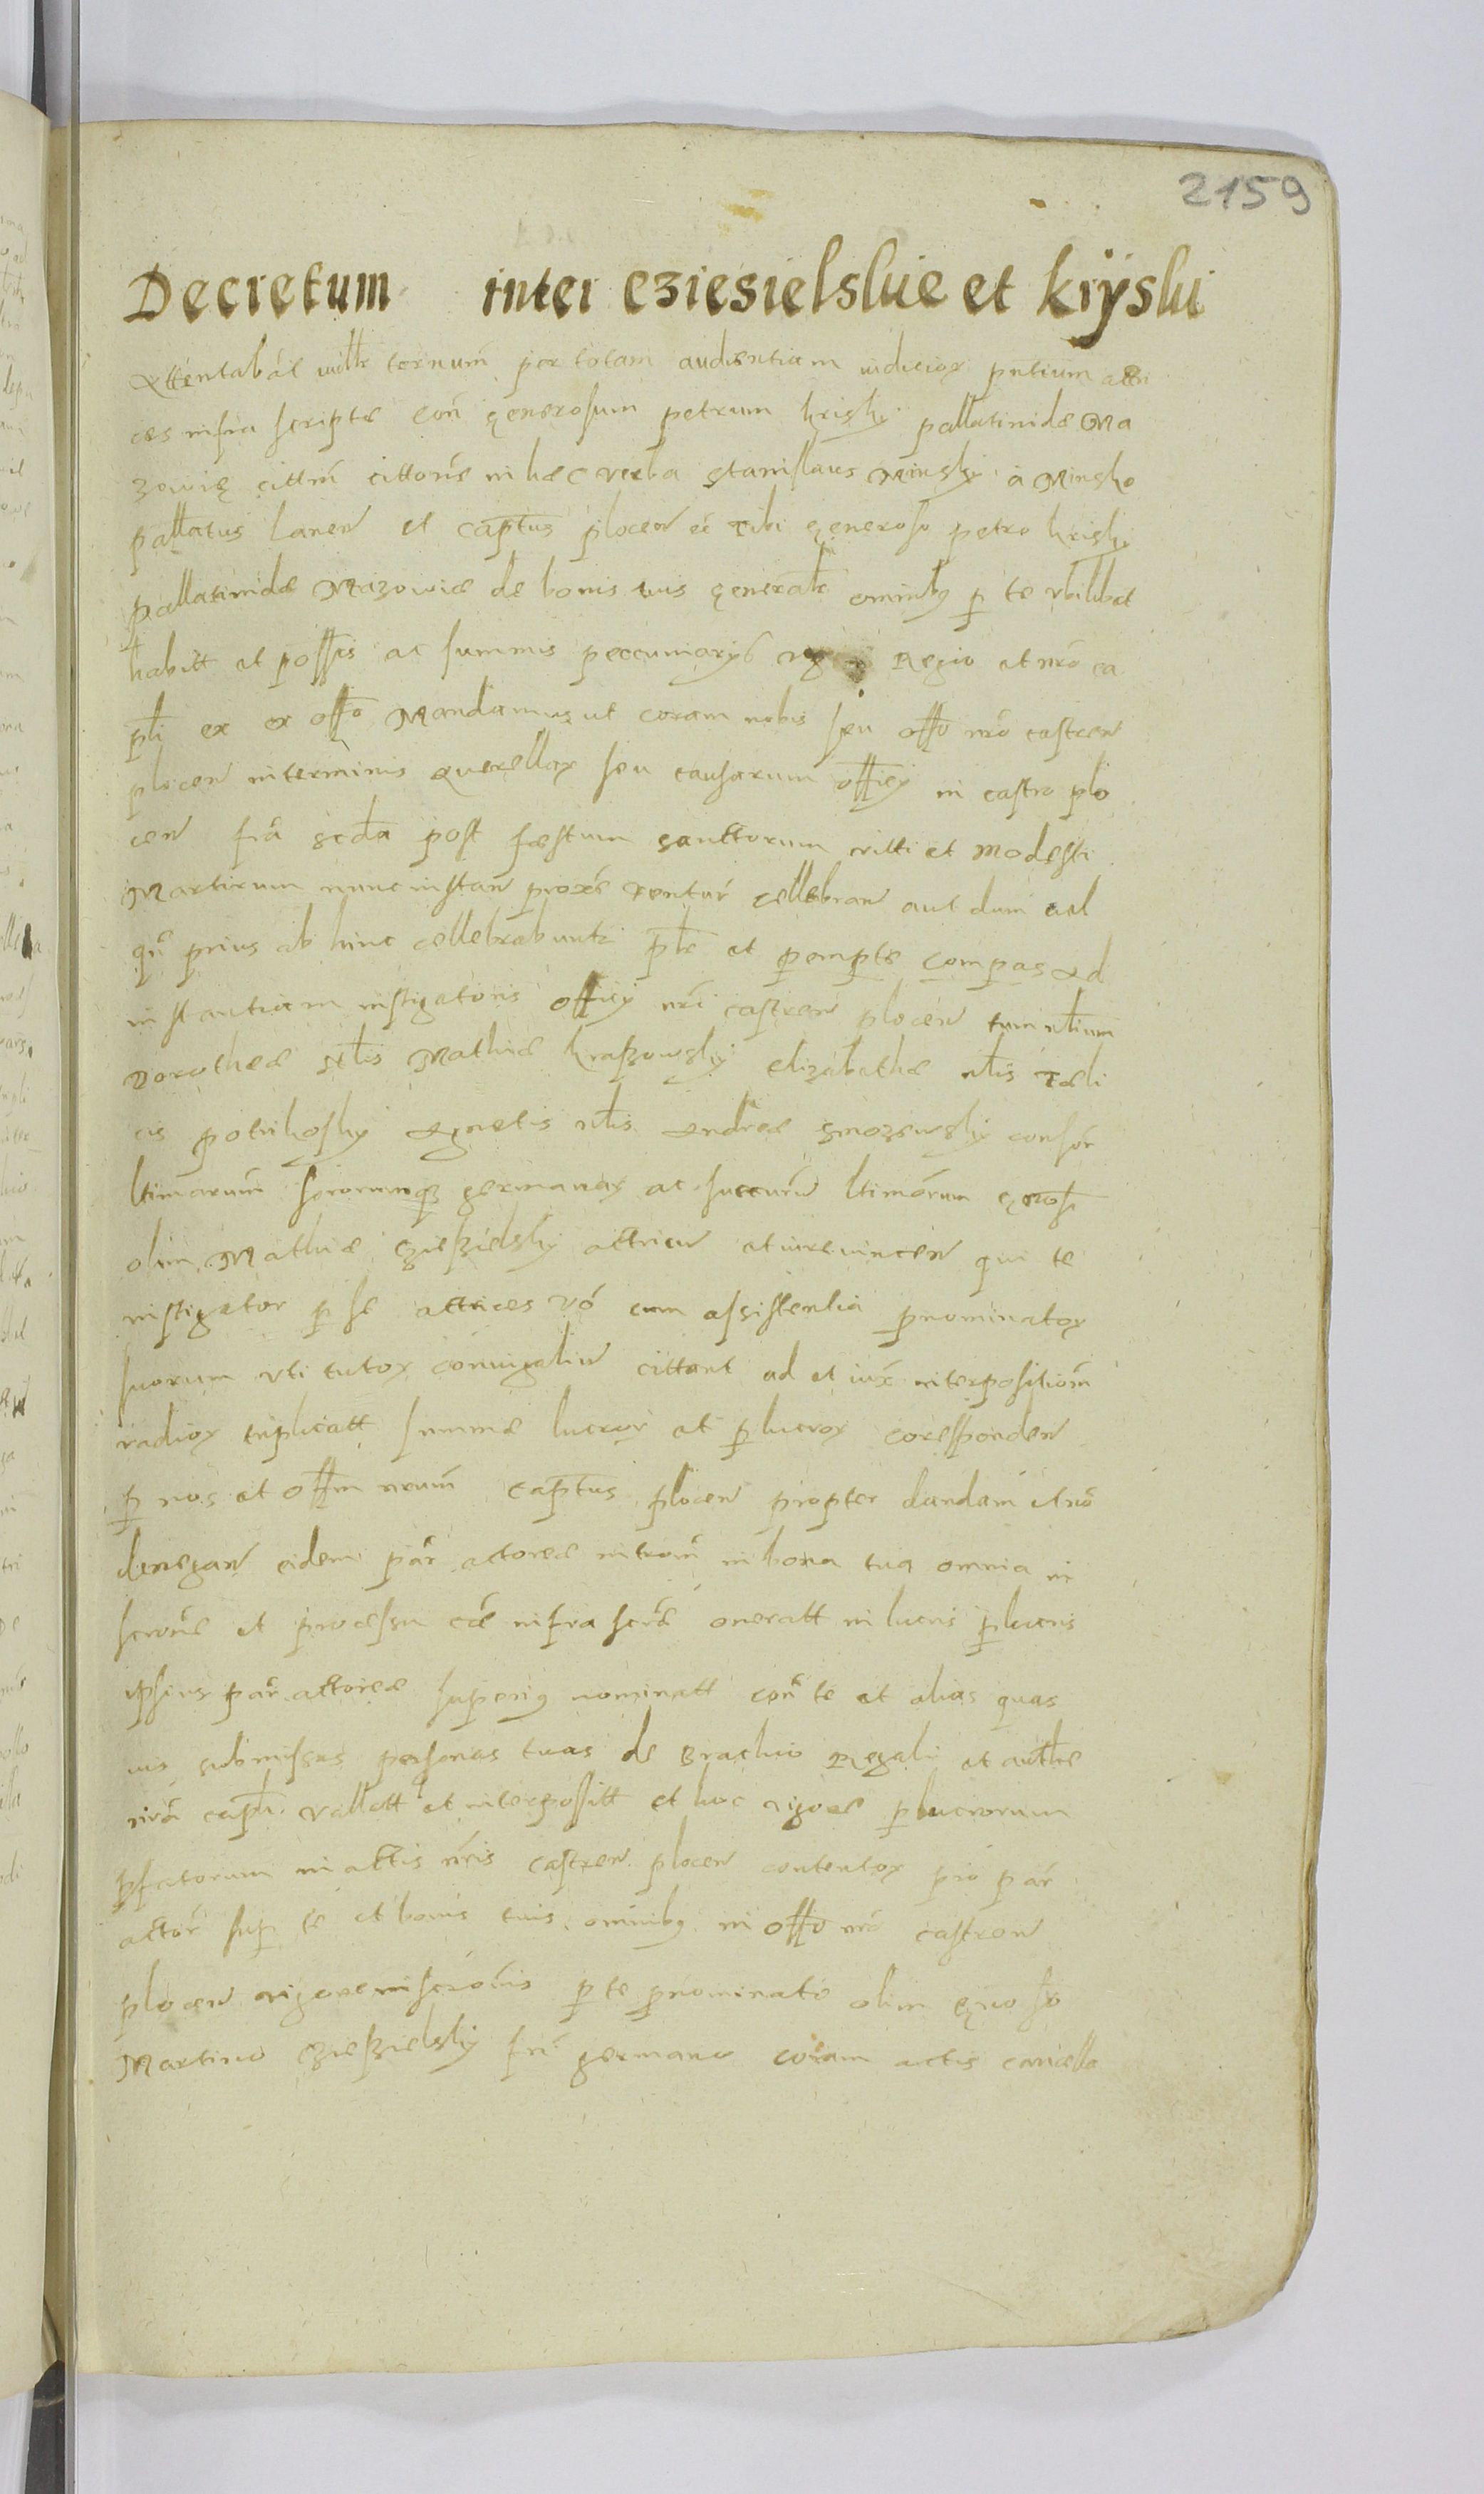 2159
Decretum inter cziesielskie et kryski
Attentabāt iudtr ternum per totam audientiam iudicior pntium actri
ces infra scripte con generosum petrum kriski pallatinidæ Ma
zowię cittm cittoris in hæc verba Stanislaus Minsky a Minsko
pallatus Lancn et captus plocen ec Tibi generoso petro kriski
pallatinidæ Mazowiæ de bonis tuis generalr omnibg p te vbilibet
habitt et possis ac summis peccuniarys Regio et nro ca
pli ex ex offo Mandamus ut coram nobis seu offo nro castren
plocen in terminis querellar seu causarum officy in castro plo
cen fra scda post fæstum sanctorum vitti et Modesti
Martirum nunc instan proxe ventur cellebran aut dum ad
qn prius ab hinc cellebrabuntr plr et pempte compas ad
instantiam instigatoris officy nri castren plocen tum nlium
Dorotheæ nlis Mathiæ kraszowsky elizabethæ nlis fæli
cis potrikosky Agnetis nlis Andreæ gmozewsky consor
ltimarum sororumqz germanar ac succun ltimorum gnosi
olim Mathiæ cziesielsky actricu et iurevincen qui te
instigator p se actrices vo cum assistentia pnominator
suorum vti tutor coniugaliu cittant ad et iux interpositiom
vadior triplicatt summæ lucror et plucror corespondcn
p nos et offm nrum captus plocen propter dandam et no
denegan eidem par actoreæ introm in bona tua omnia in
scrone et processu cæ infra scræ oneratt in lucris plucris
ipsius par actoreæ superig nominatt con te et alias quas
vis submissas personas tuas de Brachio Regali et authe
nra capli vallatt et interpositt et hoc rigore plucrorum
pfatorum in actis nris castren plocen contentor pro par
actor sup te et bonis tuis omnibg in offo nro castren
plocen rigore inscronis p te pnominato olim gnoso
Martino cziesielsky fri germano coram actis cancella